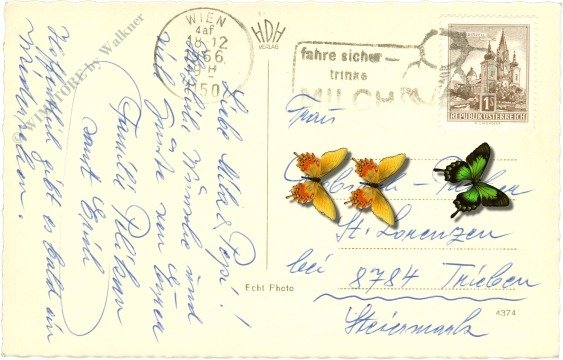 WINSTORE by Walkner
WIEN
4af
18.12
66
150
HDH
VERLAG
fahre sicher –
trinke
MILCH
REPUBLIK ÖSTERREICH
1S
Liebe Mitzi & Pepi!
Herzliche Wünsche und
viele Grüsse von Eurer
Familie
samt Erich
Hoffentlich gibt es bald ein
Wiedersehen.
Frau
St. Lorenzen
bei 8784 Trieben
Steiermark
Echt Photo
4374